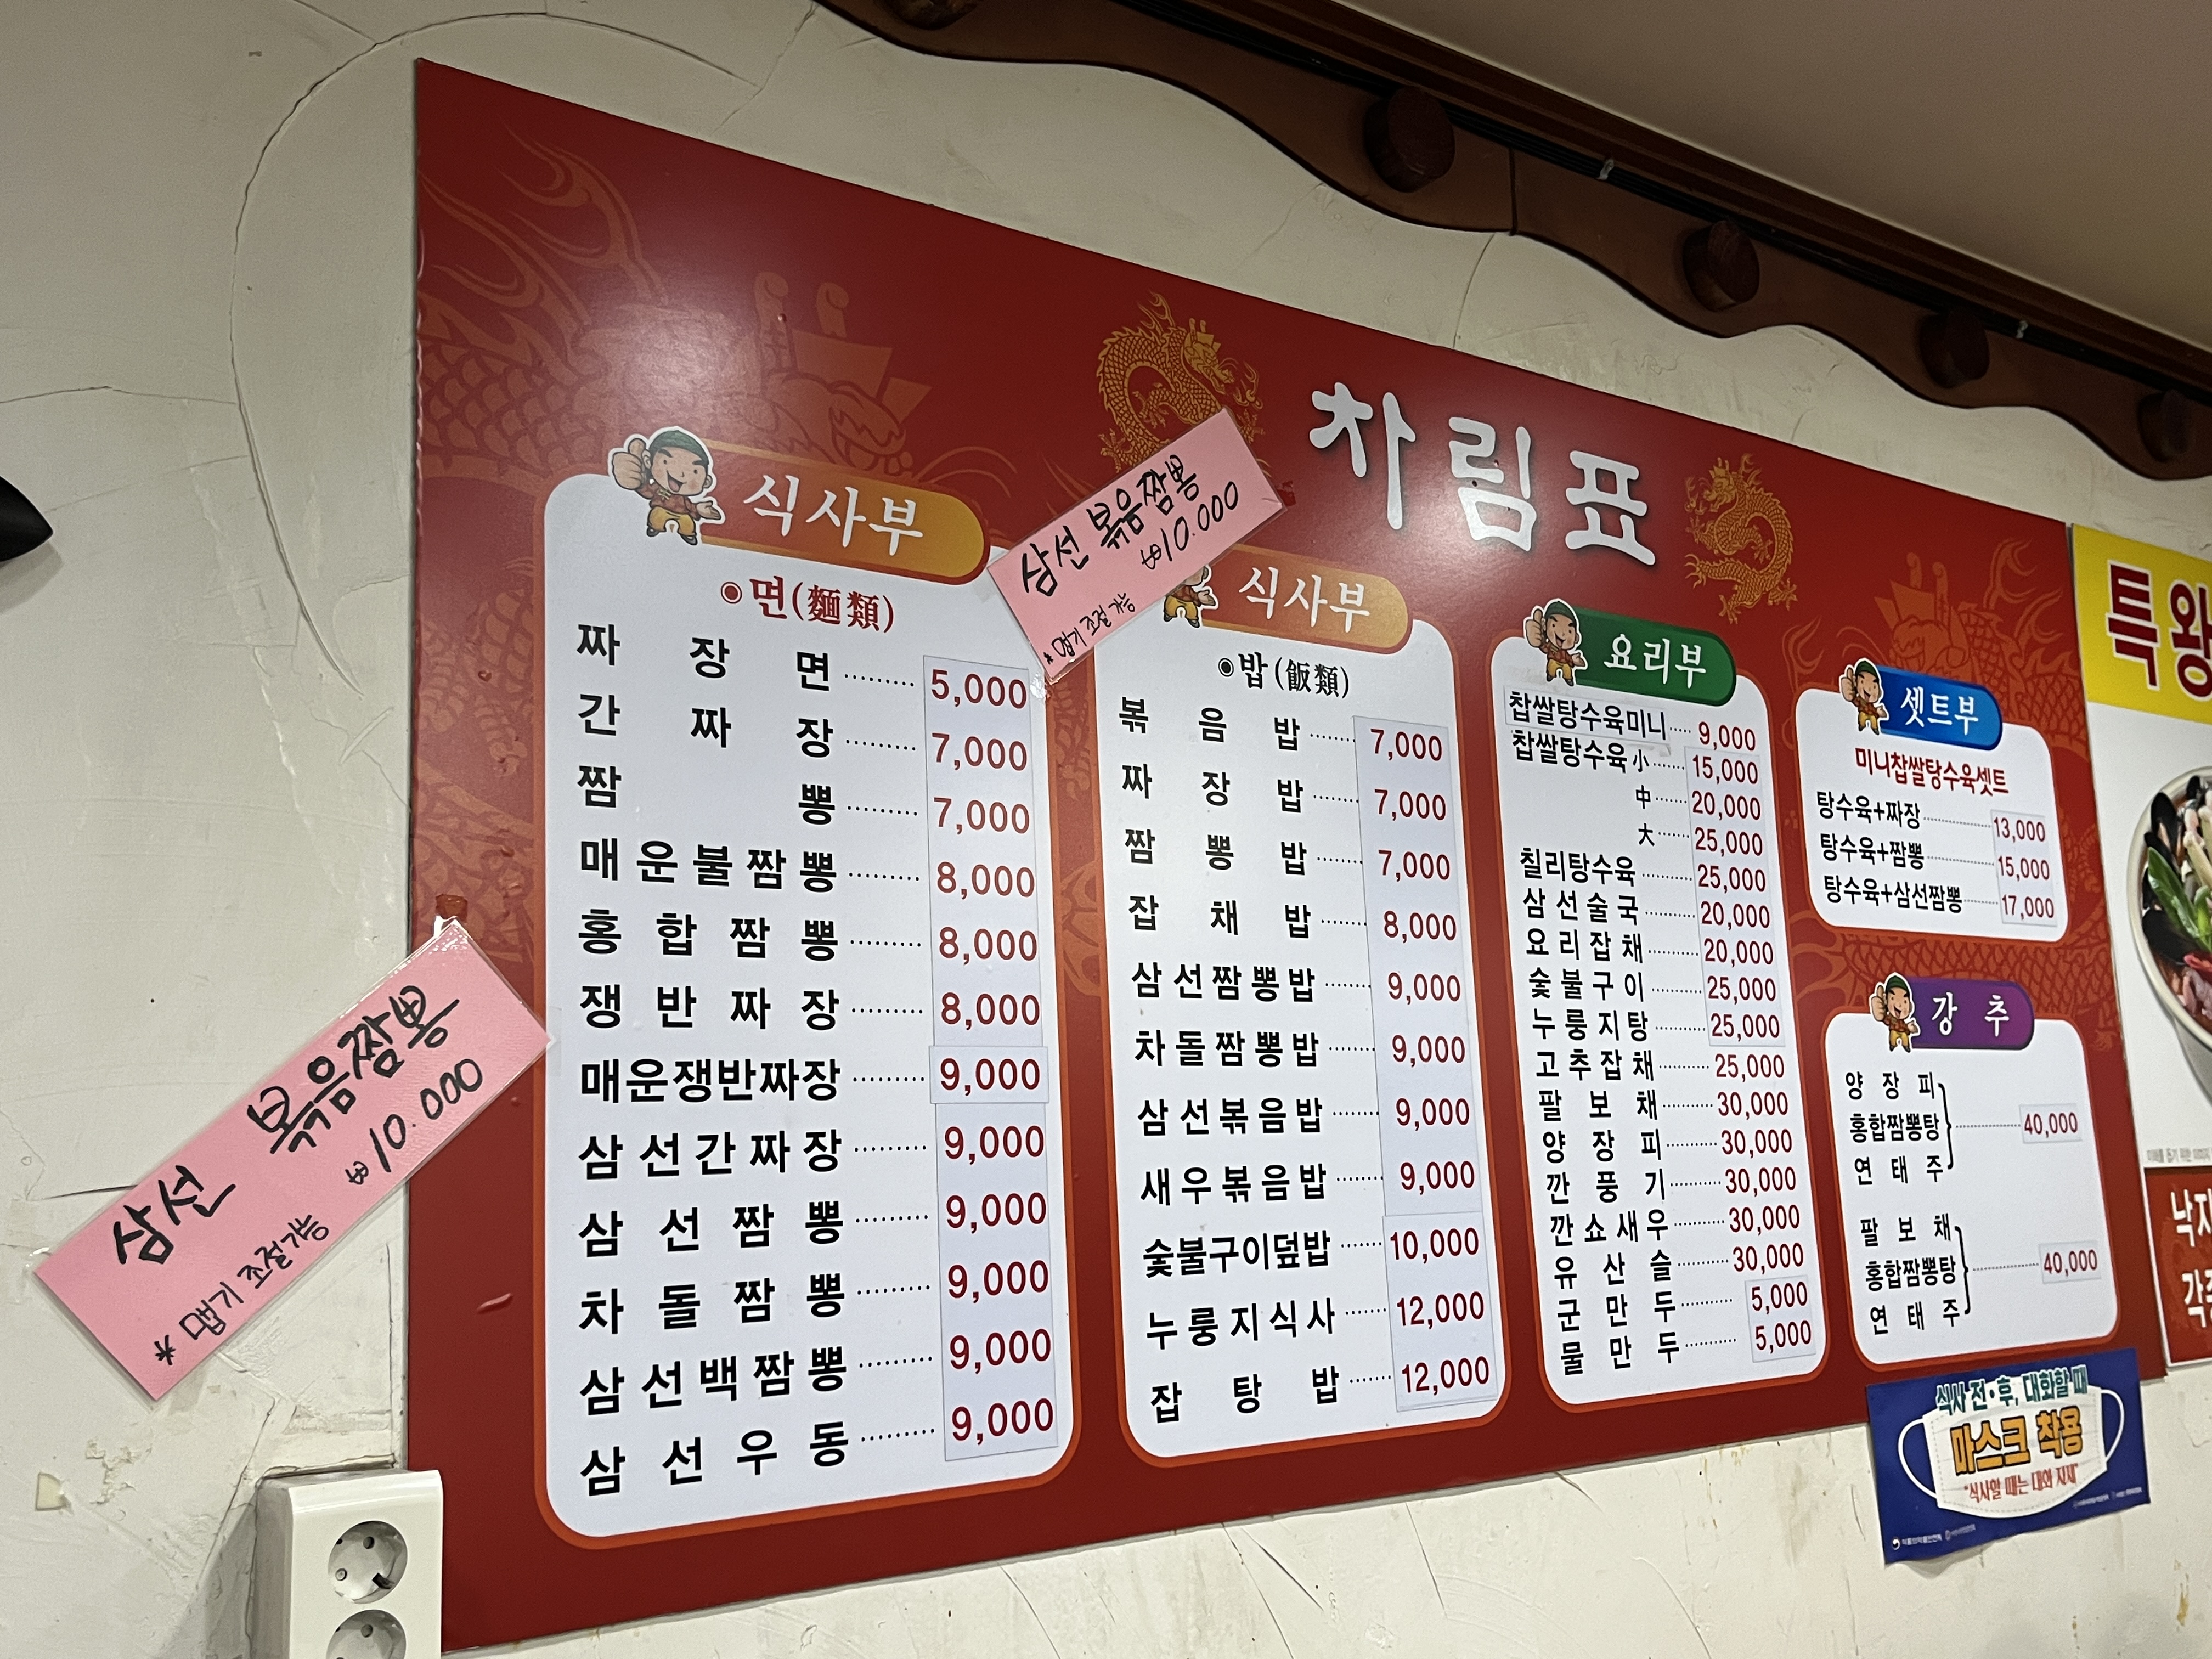 차림표
삼선 볶음짬뽕
₩10.000
*맵기 조절가능
삼선 볶음짬뽕
₩10.000
*맵기 조절 가능
식사부
◉면(麵類)
짜장면 5,000
간짜장 7,000
짬뽕 7,000
매운불짬뽕 8,000
홍합짬뽕 8,000
쟁반짜장 8,000
매운쟁반짜장 9,000
삼선간짜장 9,000
삼선짬뽕 9,000
차돌짬뽕 9,000
삼선백짬뽕 9,000
삼선우동 9,000
식사부
◉밥(飯類)
볶음밥 7,000
짜장밥 7,000
짬뽕밥 7,000
잡채밥 8,000
삼선짬뽕밥 9,000
차돌짬뽕밥 9,000
삼선볶음밥 9,000
새우볶음밥 9,000
숯불구이덮밥 10,000
누룽지식사 12,000
잡탕밥 12,000
요리부
찹쌀탕수육미니 9,000
찹쌀탕수육 小 15,000
中 20,000
大 25,000
칠리탕수육 25,000
삼선술국 20,000
요리잡채 20,000
숯불구이 25,000
누룽지탕 25,000
고추잡채 25,000
팔보채 30,000
양장피 30,000
깐풍기 30,000
깐쇼새우 30,000
유산슬 30,000
군만두 5,000
물만두 5,000
셋트부
미니찹쌀탕수육셋트
탕수육+짜장 13,000
탕수육+짬뽕 15,000
탕수육+삼선짬뽕 17,000
강추
양장피
홍합짬뽕탕 40,000
연태주
팔보채
홍합짬뽕탕 40,000
연태주
식사 전·후, 대화할 때
마스크 착용
"식사할 때는 대화 자제"
특왕
낙지